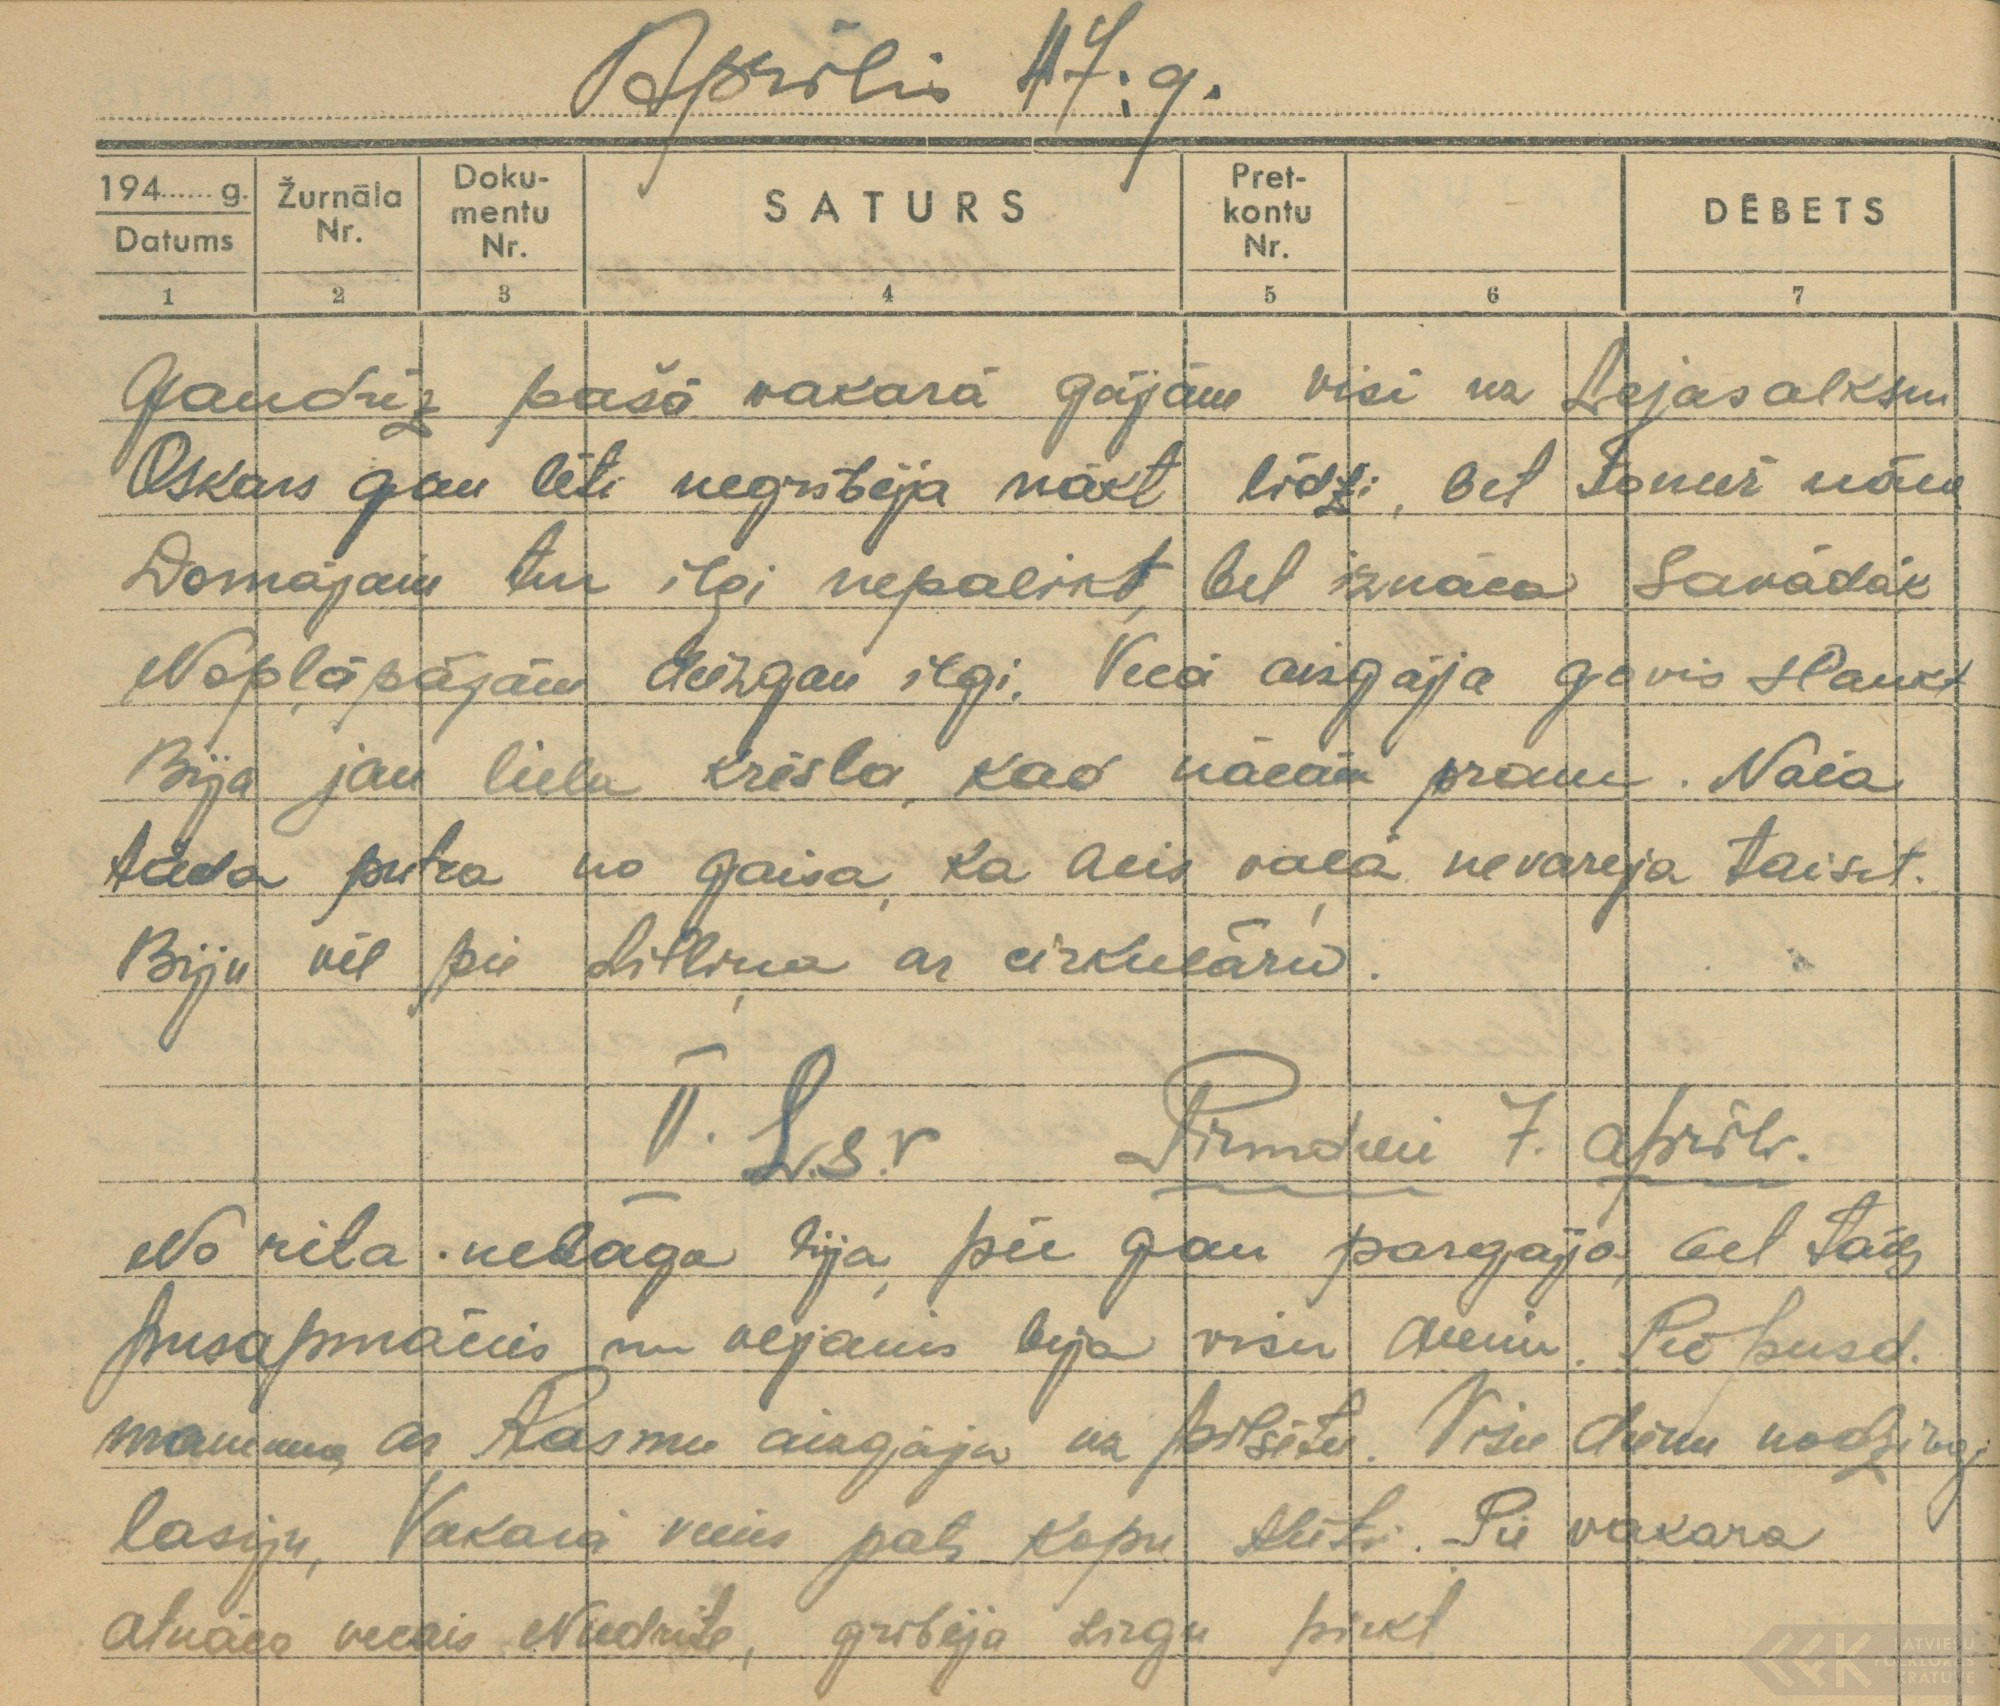 Aprīlis 47. g.
194...... g. Žurnāla Nr. Doku- mentu Nr. SATURS Pret- kontu Nr. DĒBETS
Datums
1 2 3 4 5 6 7
Gandrīz pašā vakarā gājām visi uz Lejasalksn
Oskars gan lēti negribēja nākt līdzi, bet tomēr nāca
Domājām tur ilgi nepalikt, bet iznāca savādāk
Nopļāpājām diezgan ilgi. Vecā aizgāja govis slaukt
Bija jau liela krēsla, kad nācām prom. Nāca
tāda putra no gaisa, ka acis vaļā nevarēja taisīt.
Biju vēl pie Sitliņa ar cirkulāru.
II. L.s.v Pirmdien 7. aprīlī.
No rīta nelāga lija, pēc gan pārgāja, bet tāds
pusapmācies un vējains bija visu dienu. Pēc pusd.
mamma ar Rasmu aizgāja uz pilsētu. Visu dienu
lasīju, Vakarā viens pats kopu kūti. Pie vakara
atnāca vecais Niedrīte, gribēja zirgu pirkt
LATVIEŠU FOLKLORAS KRĀTUVE